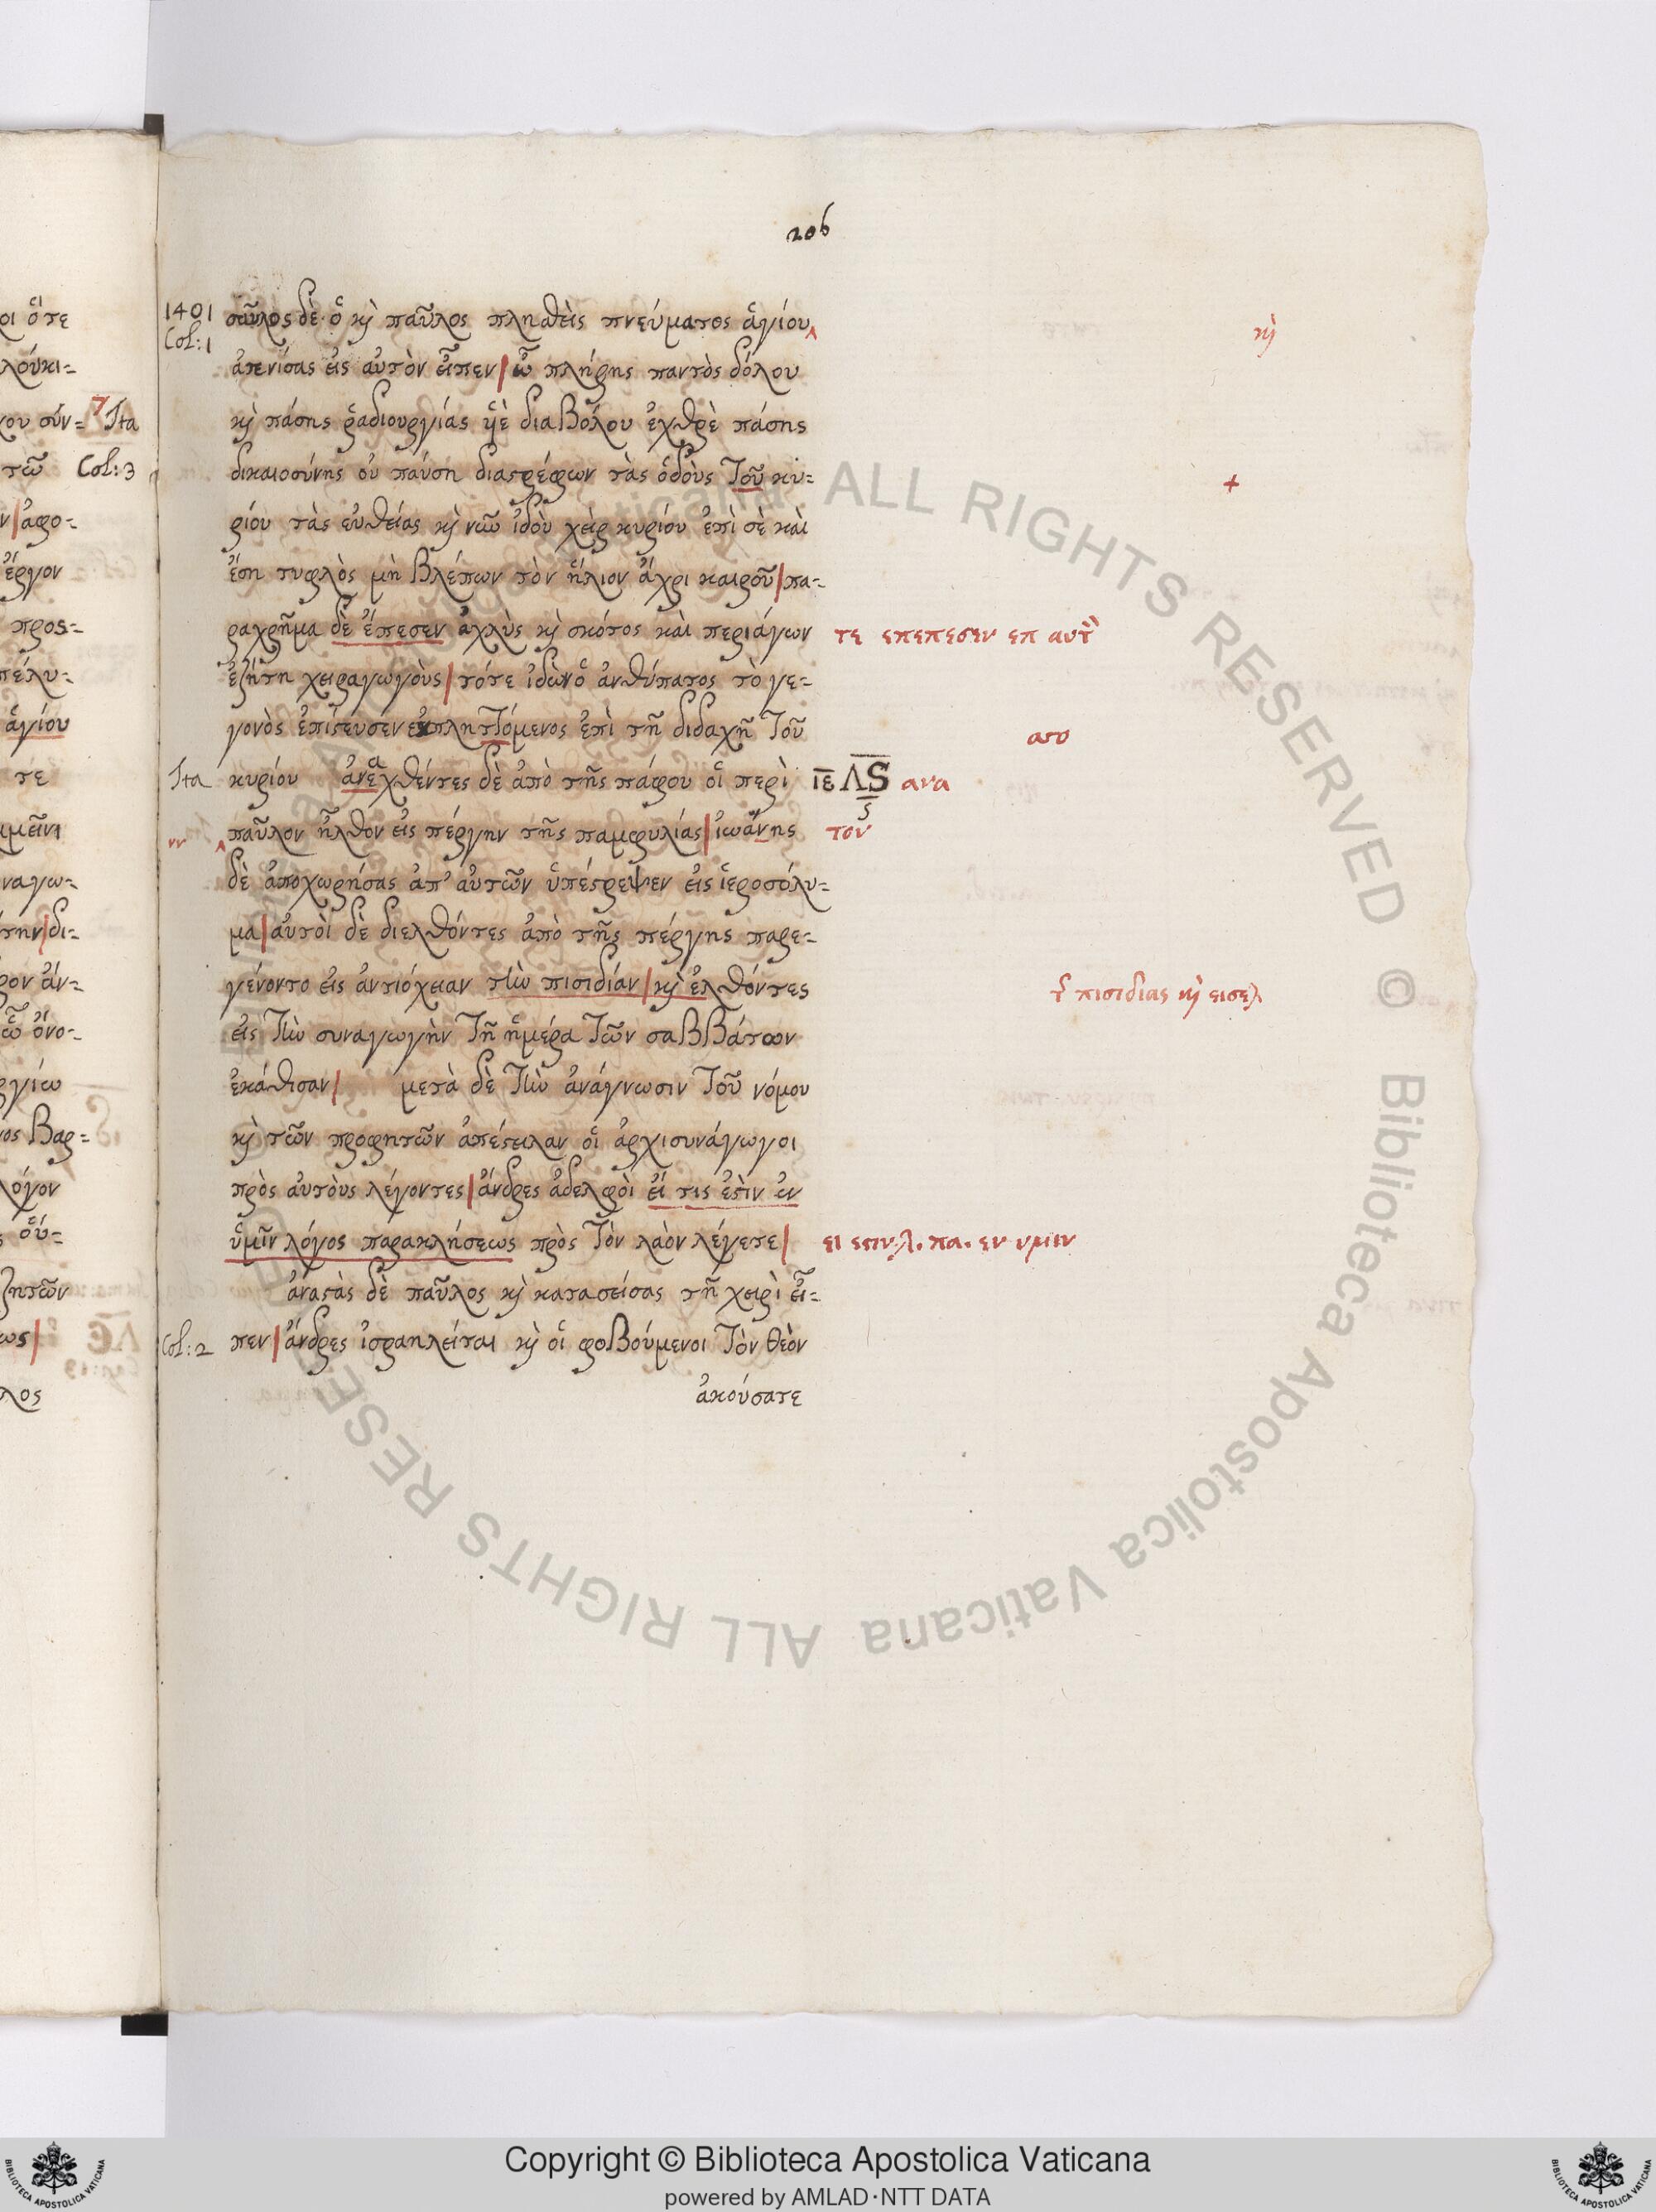 206
1401 σαῦλος δὲ ὁ κ̀ παῦλος πληθεὶς πνεύματος ἁγίου κ̀
Col: 1
ἀτενίσας εἰς αὐτὸν εἶπεν | ὦ πλήρης παντὸς δόλου
κ̀ πάσης ῥαδιουργίας ὑιὲ διαβόλου ἐχθρὲ πάσης
δικαιοσύνης οὐ παύση διαστρέφων τὰς ὁδοὺς τοῦ κυ= +
ρίου τὰς εὐθείας κ̀ νῦν ἰδοὺ χεὶρ κυρίου ἐπὶ σὲ καὶ
ἔση τυφλὸς μὴ βλέπων τὸν ἥλιον ἄχρι καιροῦ | πα=
ραχρῆμα δὲ ἔπεσεν ἀχλὺς κ̀ σκότος καὶ περιάγων τε επεπεσεν επ αυτὸ
ἐζήτη χειραγωγοὺς | τότε ἰδὼν ὁ ἀνθύπατος τὸ γε=
γονὸς ἐπίστευσεν ἐκπληττόμενος ἐπὶ τῆ διδαχῆ τοῦ
Ita κυρίου ἀνεαχθέντες δὲ ἀπὸ τῆς πάφου οἱ περὶ ιε ΛS ανα
παῦλον ἦλθον εἰς πέργην τῆς παμφυλίας | ἰωάνης τον
δὲ ἀποχωρήσας ἀπ' αὐτῶν ὑπέστρεψεν εἰς ἱεροσόλυ=
μα | αὐτοὶ δὲ διελθόντες ἀπὸ τῆς πέργης παρε=
γένοντο εἰς ἀντιόχειαν τὴν πισιδίαν | κ̀ ἐλθόντες πισιδιας κ̀ εισελ
εἰς τὴν συναγωγὴν τῆ ἡμέρα τῶν σαββάτων
ἐκάθισαν | μετὰ δὲ τὴν ἀνάγνωσιν τοῦ νόμου
κ̀ τῶν προφητῶν ἀπέστειλαν οἱ ἀρχισυνάγωγοι
πρὸς αὐτοὺς λέγοντες | ἄνδρες ἀδελφοὶ εἴ τις ἐστὶν ἐν
ὑμῖν λόγος παρακλήσεως πρὸς τὸν λαὸν λέγετε | ει εστιν. λ. πα. εν υμιν
ἀναστὰς δὲ παῦλος κ̀ κατασείσας τῆ χειρὶ εἶ=
Col: 2 πεν | ἄνδρες ἰσραηλείται κ̀ οἱ φοβούμενοι τὸν θεὸν
ἀκούσατε
Copyright © Biblioteca Apostolica Vaticana
powered by AMLAD·NTT DATA